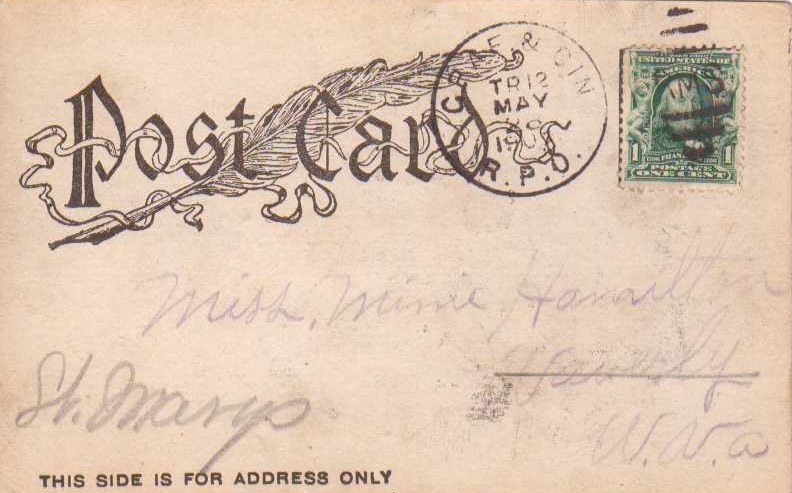 Post Card
GRAF & CIN
TR 12
MAY
R.P.O.
UNITED STATES OF
AMERICA
1 FRANKLIN 1
POSTAGE
ONE CENT
Miss. Mimie Hamilton
Waverly
W. Va
St. Marys
THIS SIDE IS FOR ADDRESS ONLY